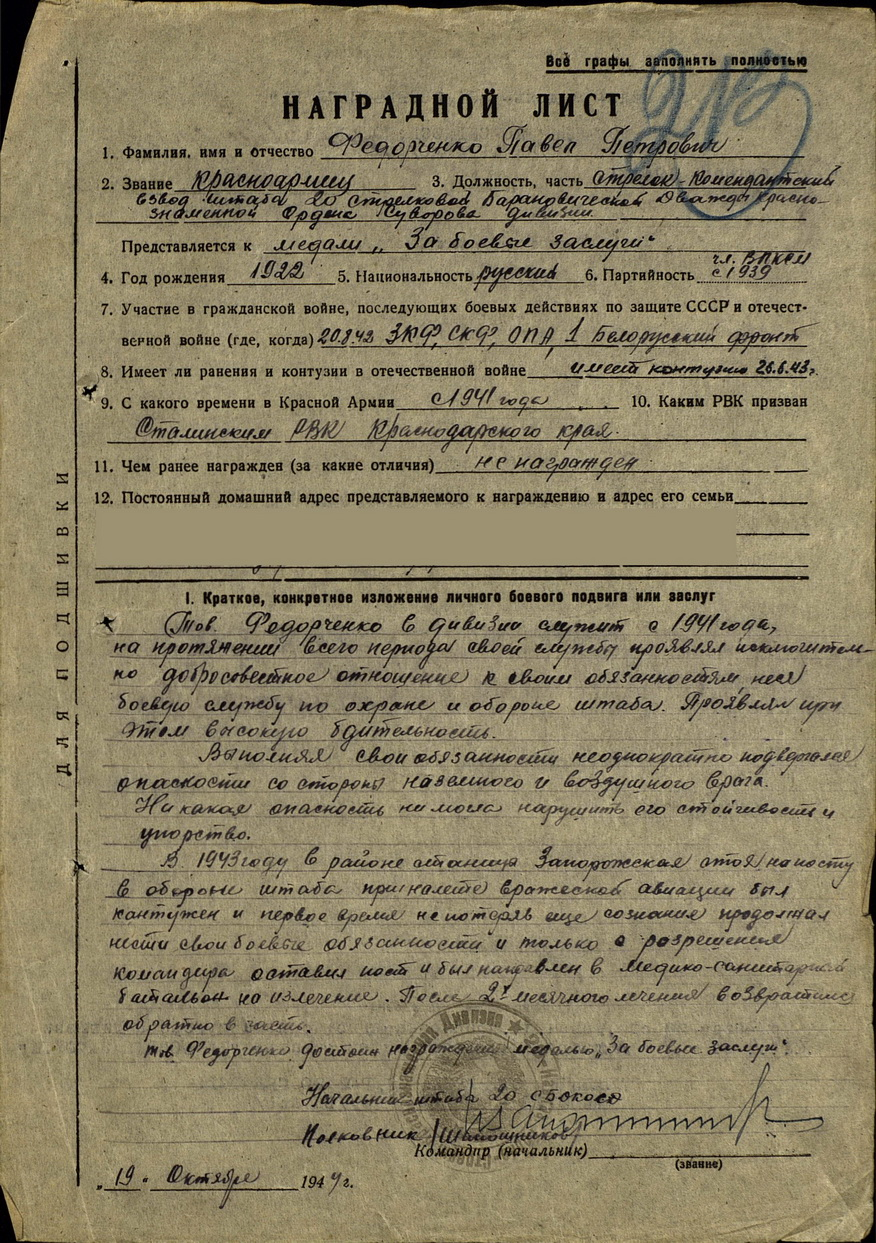 Все графы заполнять полностью
НАГРАДНОЙ ЛИСТ
1. Фамилия, имя и отчество Федорченко Павел Петрович
2. Звание Красноармеец 3. Должность, часть Стрелок-Комендантский
взвод штаба 20 Стрелковой Барановической Дважды Красно-
знаменной Ордена Суворова дивизии.
Представляется к медали „За боевые заслуги“
чл. ВЛКСМ
4. Год рождения 1922 5. Национальность русский 6. Партийность с 1939
7. Участие в гражданской войне, последующих боевых действиях по защите СССР и отечест-
венной войне (где, когда) 20.8.42 ЗКФ, СКФ, ОПА, 1 Белорусский фронт
8. Имеет ли ранения и контузии в отечественной войне имеет контузию 26.6.43г.
9. С какого времени в Красной Армии с 1941 года 10. Каким РВК призван
Сталинским РВК Краснодарского края.
11. Чем ранее награжден (за какие отличия) не награжден
12. Постоянный домашний адрес представляемого к награждению и адрес его семьи
I. Краткое, конкретное изложение личного боевого подвига или заслуг
Тов. Федорченко в дивизии служит с 1941 года,
на протяжении всего периода своей службы проявлял исключитель-
но добросовестное отношение к своим обязанностям, неся
боевую службу по охране и обороне штаба. Проявлял при
этом высокую бдительность.
Выполняя свои обязанности неоднократно подвергался
опасности со стороны наземного и воздушного врага.
Никакая опасность не могла нарушить его стойчивость и
упорство.
В 1943 году в районе станица Запорожская стоя на посту
в обороне штаба при налете вражеской авиации был
кантужен и первое время не потеряв еще сознания продолжал
нести свои боевые обязанности и только с разрешения
командира оставил пост и был направлен в медико-санитарный
батальон на излечение. После 2х месячного лечения возвратился
обратно в часть.
Тов. Федорченко достоин награждения медалью „За боевые заслуги“.
Начальник штаба 20 СБКОСД
Полковник /Шапошников/
Командир (начальник)
(звание)
„19“ Октября 1944 г.
ДЛЯ ПОДШИВКИ